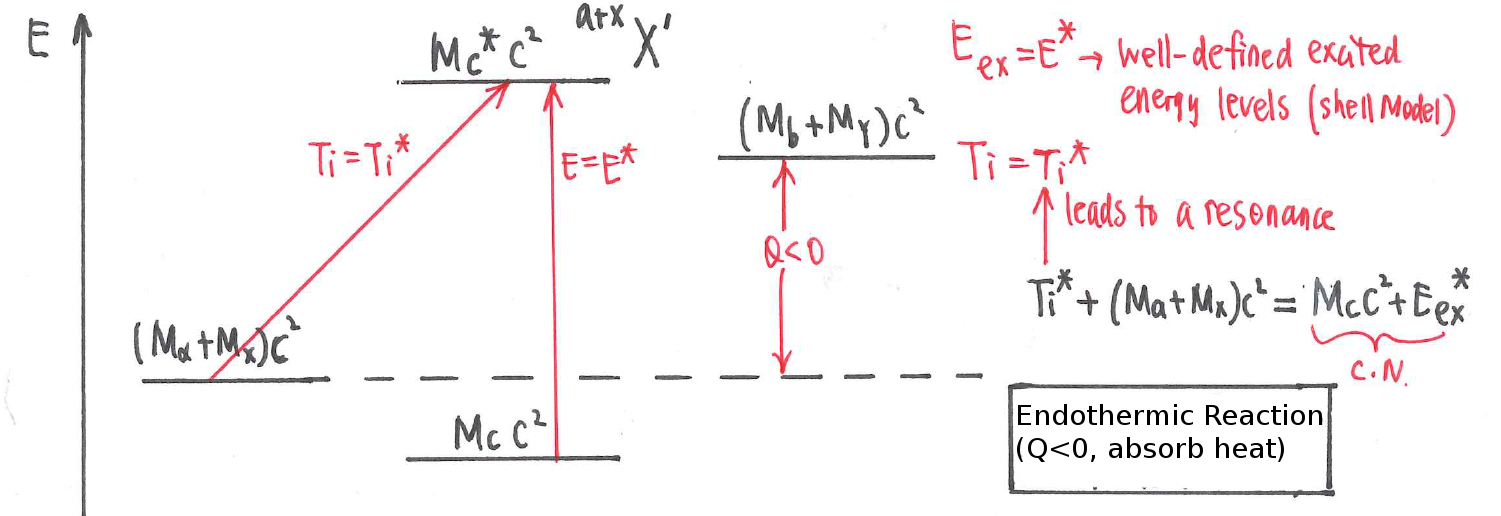 E
Mc*c² ᵃ⁺ˣX'
Ti=Ti*
E=E*
(Ma+Mx)c²
Mc c²
(Mb+MY)c²
Q<0
Eex=E* → well-defined exated
energy levels (shell Model)
Ti=Ti*
leads to a resonance
Ti*+(Ma+Mx)c²=Mcc²+Eex*
C.N.
Endothermic Reaction
(Q<0, absorb heat)